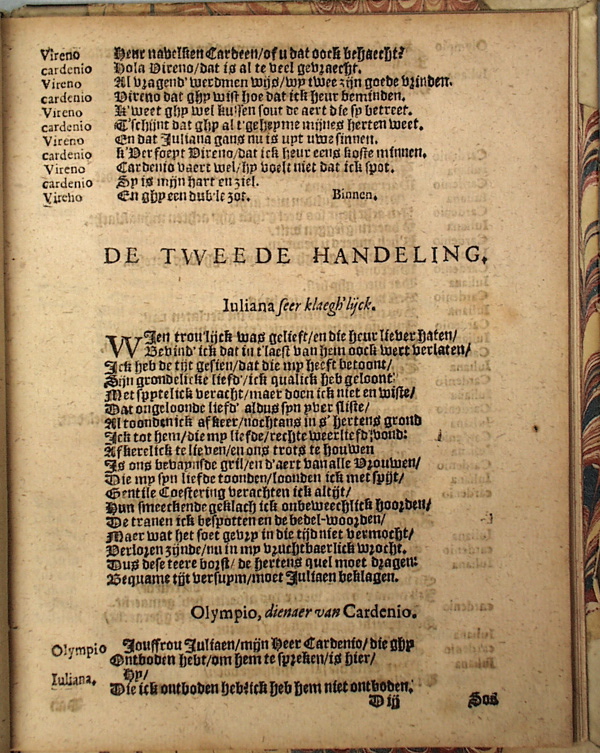 Vireno Heur navelken Cardeen/of u dat oock behaecht?
cardenio Hola Vireno/dat is al te veel gevraecht.
Vireno Al vragend' werdmen wijs/wy twee zijn goede vrinden.
cardenio Vireno dat ghy wist hoe dat ick heur beminden.
Vireno K'weet ghy wel kussen sout de aert die sy betreet.
cardenio T'schijnt dat ghy al t'geheyme mijnes herten weet.
Vireno En dat Juliana gans nu is uyt uwe sinnen.
cardenio k'Verfoeyt Vireno/dat ick heur eens koste minnen.
Vireno Cardenio vaert wel/hy voelt niet dat ick spot.
cardenio Sy is mijn hart en ziel.
Vireno En ghy een dub'le zot. Binnen.
DE TWEEDE HANDELING.
Iuliana seer klaegh'lijck.
WIen trou'lijck was gelieft/en die heur liever haten/
Bevind' ick dat in t'laest van hem oock wert verlaten/
Ick heb de tijt gesien/dat die my heeft betoont/
Sijn grondelicke liefd'/ick qualick heb geloont
Met spytelick veracht/maer doen ick niet en wiste/
Dat ongeloonde liefd' aldus syn yver sliste/
Al toonden ick afkeer/nochtans in s' hertens grond
Ick tot hem/die my liefde/rechte weerliefd' vond:
Afkerelick te lieven/en ons trots te houwen
Is ons bevaynsde gril/en d'aert van alle Vrouwen/
Die my syn liefde toonden/loonden ick met spijt/
Gentile Coestering verachten ick altijt/
Hun smeeckende geklach ick onbeweechlick hoorden/
De tranen ick bespotten en de bedel-woorden/
Maer wat het soet gevry in die tijd niet vermocht/
Verloren zijnde/nu in my vruchtbaerlick wrocht.
Dus dese teere borst/ de hertens quel moet dragen:
Bequame tijt versuym/moet Juliaen beklagen.
Olympio, dienaer van Cardenio.
Olympio Jouffrou Juliaen/mijn Heer Cardenio/die ghy
Ontboden hebt/om hem te spreken/is hier/
Iuliana. Hy/
Die ick ontboden heb? ick heb hem niet ontboden.
D iij Sos